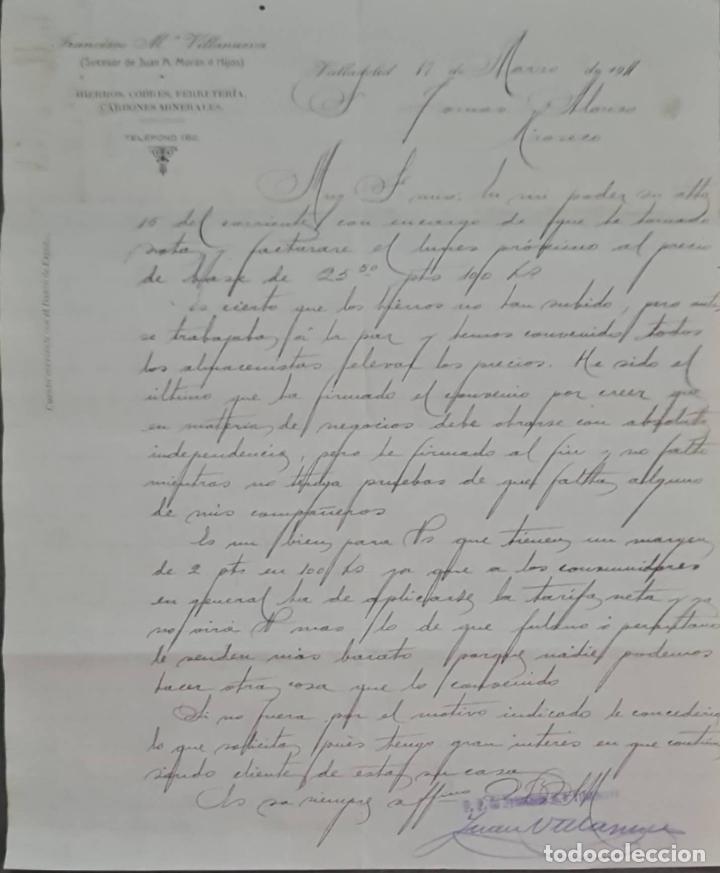 Francisco Mª Villanueva
(Sucesor de Juan A. Morán é Hijos)
HIERROS, COBRES, FERRETERÍA,
CARBONES MINERALES.
TELÉFONO 182.
Valladolid 17 de Marzo de 1911
Sr. Tomas Alonso
Rioseco
Cuenta corriente con el Banco de España.
Muy Sr mio: En mi poder su atta
15 del corriente con encargo de que he tomado
nota y facturare el lunes próximo al precio
de base de 25 50 pts 100 Ks
Es cierto que los hierros no han subido, pero antes
se trabajaba á la par y hemos convenido todos
los almacenistas elevar los precios. He sido el
último que ha firmado el convenio por creer que
en materia de negocios debe obrarse con absoluta
independencia, pero he firmado al fin y no falto
mientras no tenga pruebas de que falta alguno
de mis compañeros
Es un bien para Vs que tienen un margen
de 2 pts en 100 Ks ya que a los consumidores
en general ha de aplicarse la tarifa neta y ya
no oirá V mas lo de que fulano ó perengano
le venden más barato porque nadie podemos
hacer otra cosa que lo convenido
Si no fuera por el motivo indicado le concederia
lo que solicita, pues tengo gran interes en que continue
siendo cliente de esta su casa
Es su siempre affmo
Juan Villanueva
todocoleccion.net